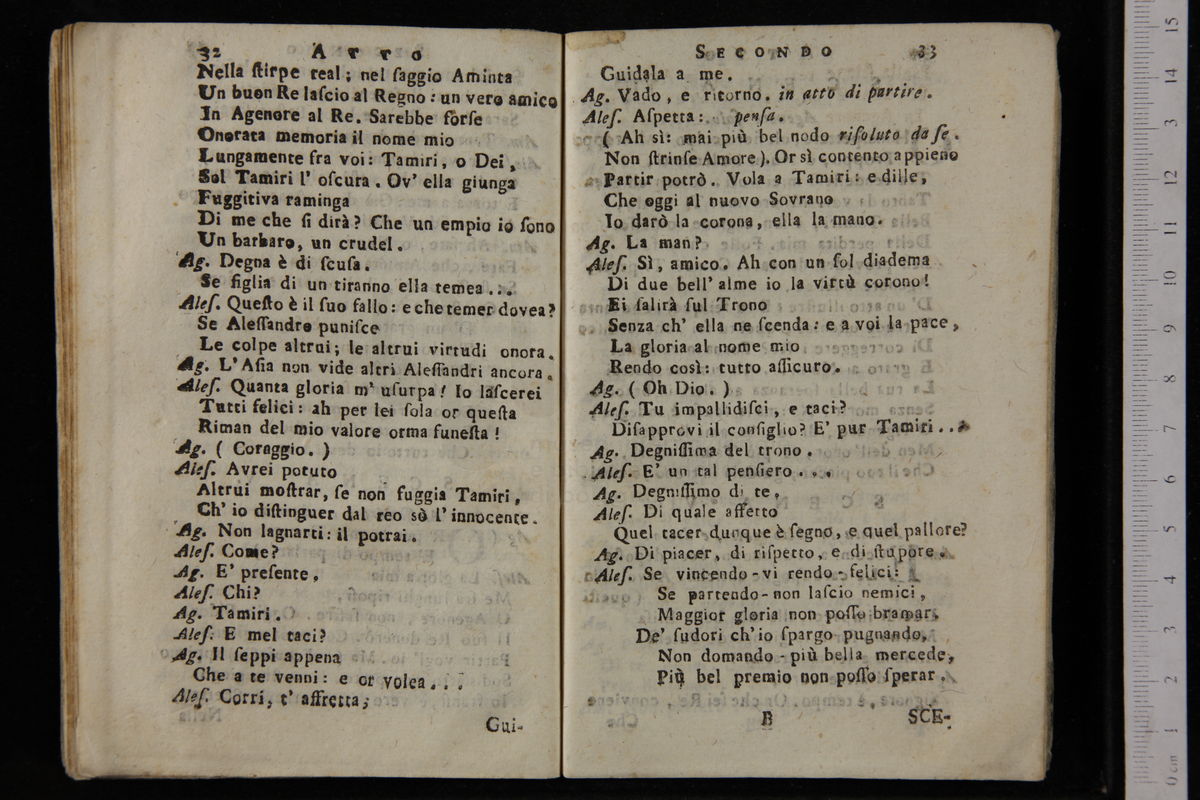 32 ATTO
Nella ſtirpe real; nel ſaggio Aminta
Un buon Re laſcio al Regno: un vero amico
In Agenore al Re. Sarebbe forſe
Onorata memoria il nome mio
Lungamente fra voi: Tamiri, o Dei,
Sol Tamiri l' oſcura. Ov' ella giunga
Fuggitiva raminga
Di me che ſi dirà? Che un empio io ſono
Un barbaro, un crudel.
Ag. Degna è di ſcuſa.
Se figlia di un tiranno ella temea...
Aleſ. Queſto è il ſuo fallo: e che temer dovea?
Se Aleſſandro puniſce
Le colpe altrui; le altrui virtudi onora.
Ag. L'Aſia non vide altri Aleſſandri ancora.
Aleſ. Quanta gloria m' uſurpa! Io laſcerei
Tutti felici: ah per lei ſola or queſta
Riman del mio valore orma funeſta!
Ag. ( Coraggio. )
Aleſ. Avrei potuto
Altrui moſtrar, ſe non fuggia Tamiri,
Ch' io diſtinguer dal reo sò l'innocente.
Ag. Non lagnarti: il potrai.
Aleſ. Come?
Ag. E' preſente.
Aleſ. Chi?
Ag. Tamiri.
Aleſ. E mel taci?
Ag. Il ſeppi appena
Che a te venni: e or volea...
Aleſ. Corri, t' affretta;
Gui-
SECONDO 33
Guidala a me.
Ag. Vado, e ritorno. in atto di partire.
Aleſ. Aſpetta: penſa.
( Ah sì: mai più bel nodo riſoluto da ſe.
Non ſtrinſe Amore ). Or sì contento appieno
Partir potrò. Vola a Tamiri: e dille,
Che oggi al nuovo Sovrano
Io darò la corona, ella la mano.
Ag. La man?
Aleſ. Sì, amico. Ah con un ſol diadema
Di due bell' alme io la virtù corono!
Ei ſalirà ſul Trono
Senza ch' ella ne ſcenda: e a voi la pace,
La gloria al nome mio
Rendo così: tutto aſſicuro.
Ag. ( Oh Dio. )
Aleſ. Tu impallidiſci, e taci?
Diſapprovi il conſiglio? E' pur Tamiri...
Ag. Degniſſima del trono.
Aleſ. E' un tal penſiero...
Ag. Degniſſimo di te.
Aleſ. Di quale affetto
Quel tacer dunque è ſegno, e quel pallore?
Ag. Di piacer, di riſpetto, e di ſtupore.
Aleſ. Se vincendo - vi rendo - felici:
Se partendo - non laſcio nemici,
Maggior gloria non poſſo bramar.
De' ſudori ch'io ſpargo pugnando,
Non domando - più bella mercede,
Più bel premio non poſſo ſperar.
B SCE-
0 cm 1 2 3 4 5 6 7 8 9 10 11 12 13 14 15